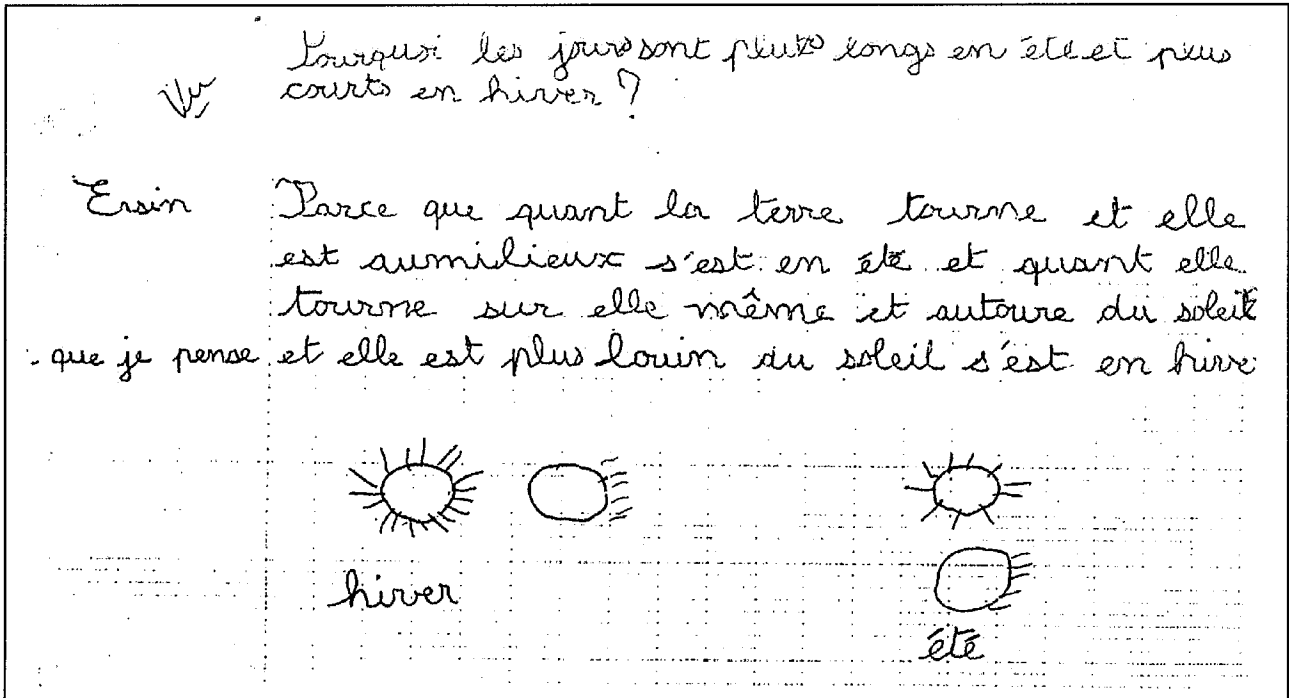 Pourquoi les jours sont plus longs en été et plus
courts en hiver ?
Vu
Ersin Parce que quant la terre tourne et elle
est aumilieux s'est en été et quant elle
tourne sur elle même et autoure du soleil
que je pense et elle est plus louin du soleil s'est en hive
hiver
été